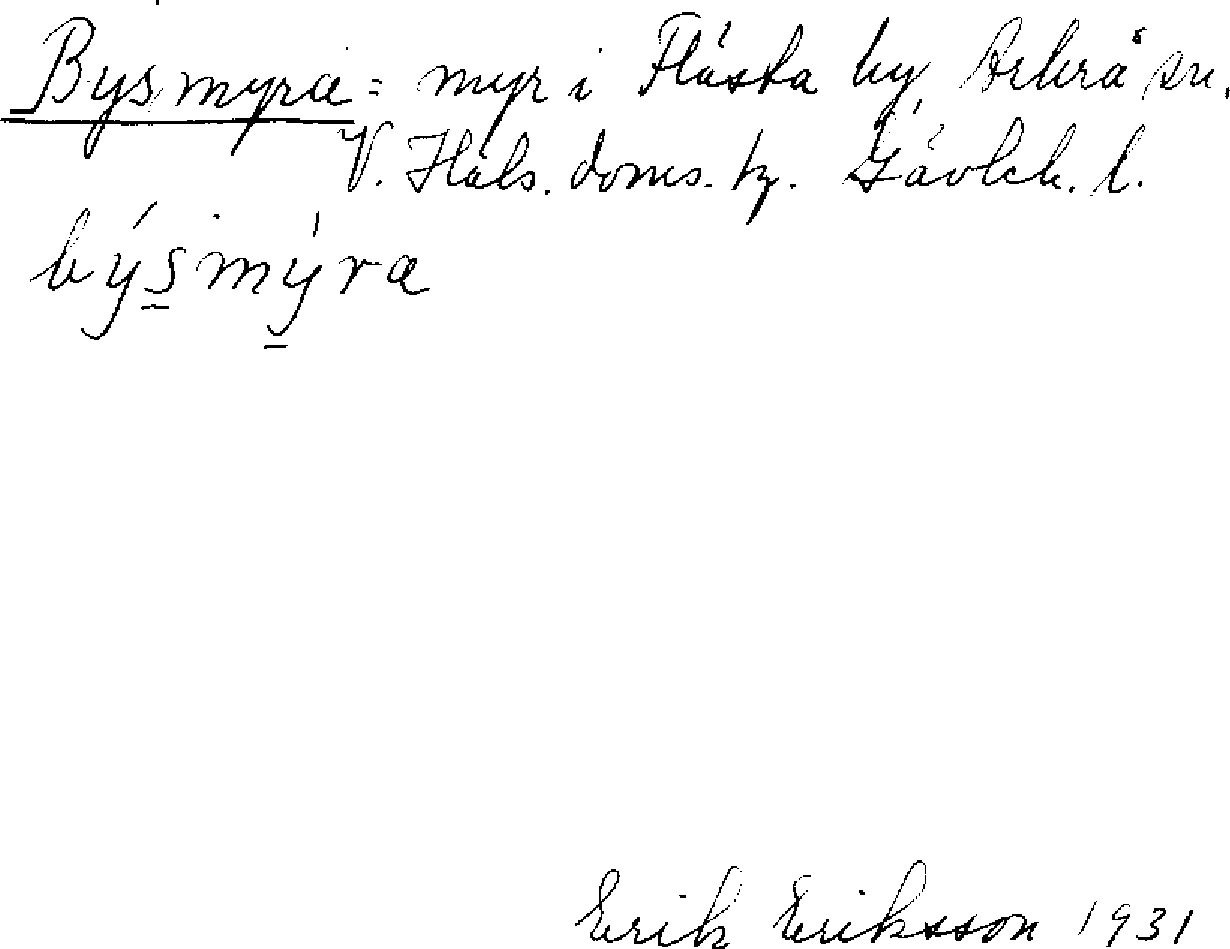 Bysmyra = myr i Flästa by, Arbrå sn.
V. Häls. doms. hz. Gävleb. l.
býsmýra
Erik Eriksson 1931